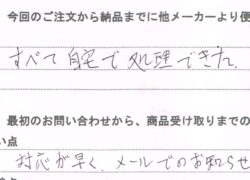 今回のご注文から納品までに他メーカーより便
すべて自宅で処理できた。
最初のお問い合わせから、商品受け取りまでの
い点
対応が早く、メールでのお知らせ